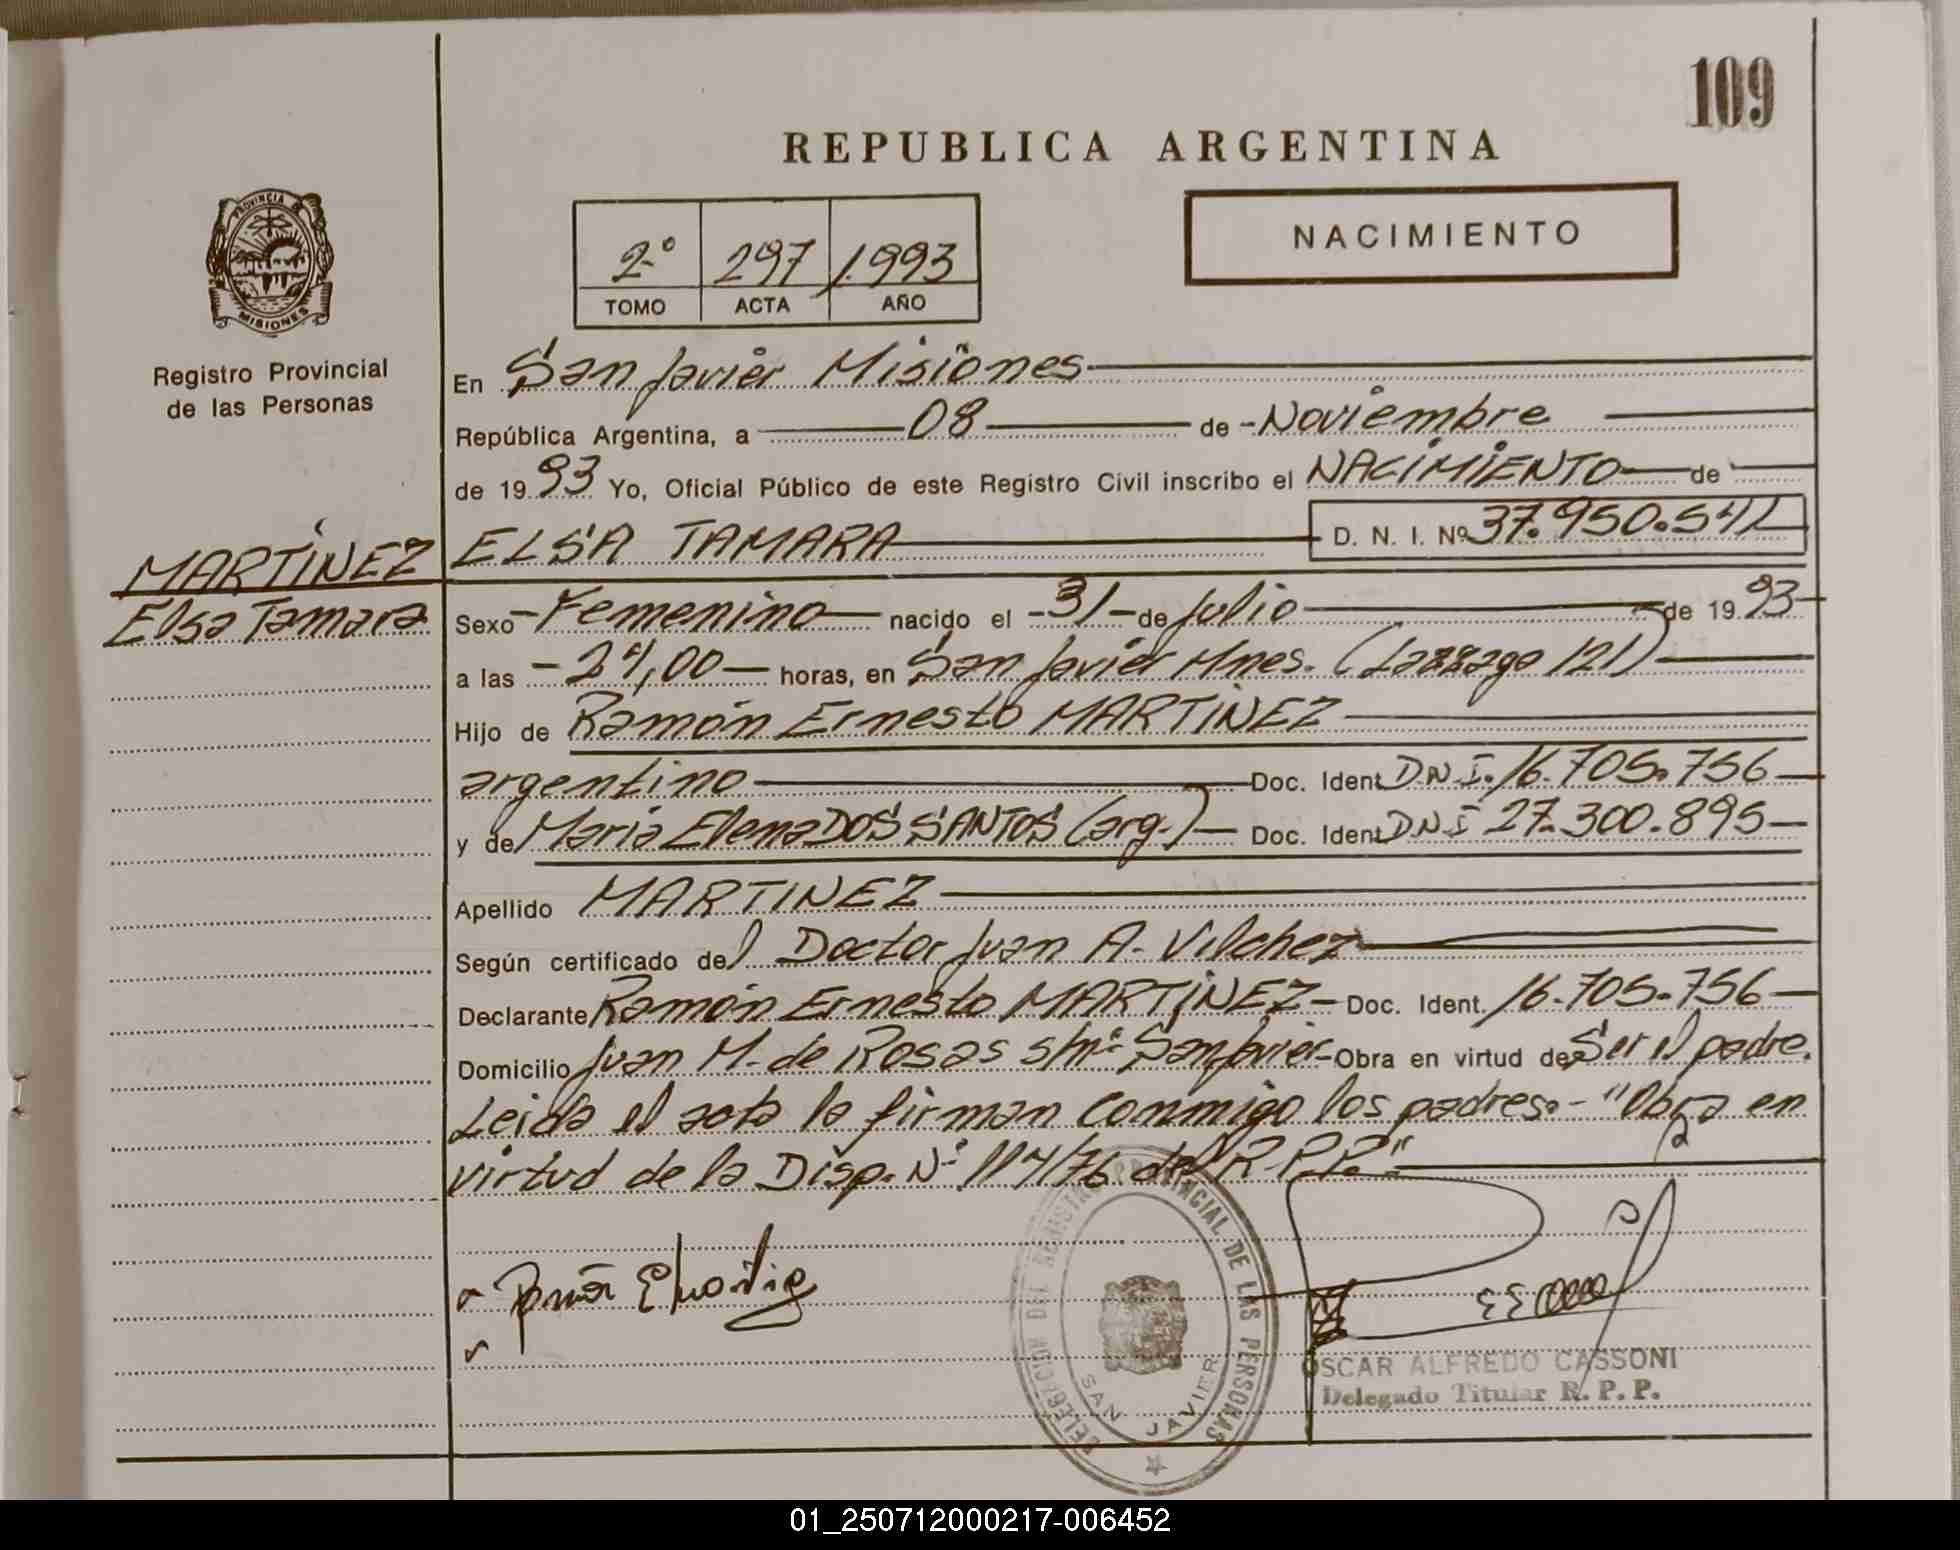 109
REPUBLICA ARGENTINA
PROVINCIA DE
MISIONES
2º 297 1.993
TOMO ACTA AÑO
NACIMIENTO
Registro Provincial
de las Personas
En San Javier Misiones
República Argentina, a 08 de Noviembre
de 1993 Yo, Oficial Público de este Registro Civil inscribo el NACIMIENTO de
MARTINEZ
Elsa Tamara
ELSA TAMARA D. N. I. Nº 37.950.541
Sexo Femenino nacido el 31 de Julio de 1993
a las 24,00 horas, en San Javier Mnes. ( 121)
Hijo de Ramón Ernesto MARTINEZ
argentino Doc. Ident D.N.I. 16.705.756
y de Maria Elena DOS SANTOS (arg.) Doc. Ident D.N.I 27.300.895
Apellido MARTINEZ
Según certificado del Doctor Juan A. Vilchez
Declarante Ramón Ernesto MARTINEZ Doc. Ident. 16.705.756
Domicilio Juan M. de Rosas s/nº San Javier Obra en virtud de Ser el padre.
Leida el acta la firman conmigo los padres.- "Obra en
virtud de la Disp. Nº 114/76 del R.P.P."
DELEGACION DEL REGISTRO PROVINCIAL DE LAS PERSONAS
SAN JAVIER
OSCAR ALFREDO CASSONI
Delegado Titular R. P. P.
01_250712000217-006452